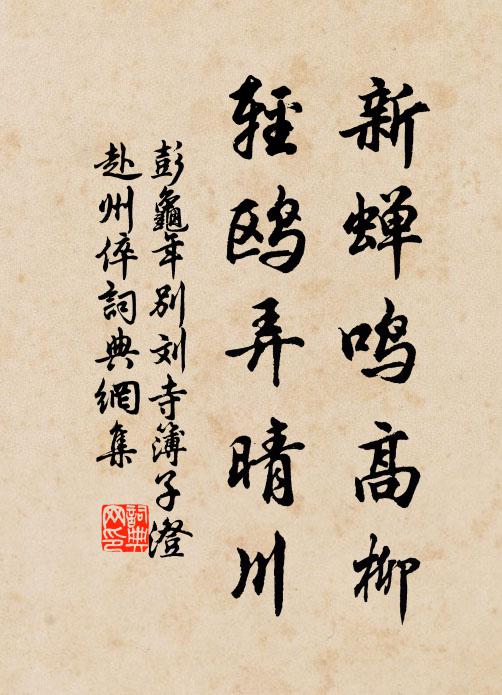 新蝉鸣高柳
轻鸥弄晴川
彭龜年别刘寺簿子澄
赴州倅詞典網集
詞典
网印